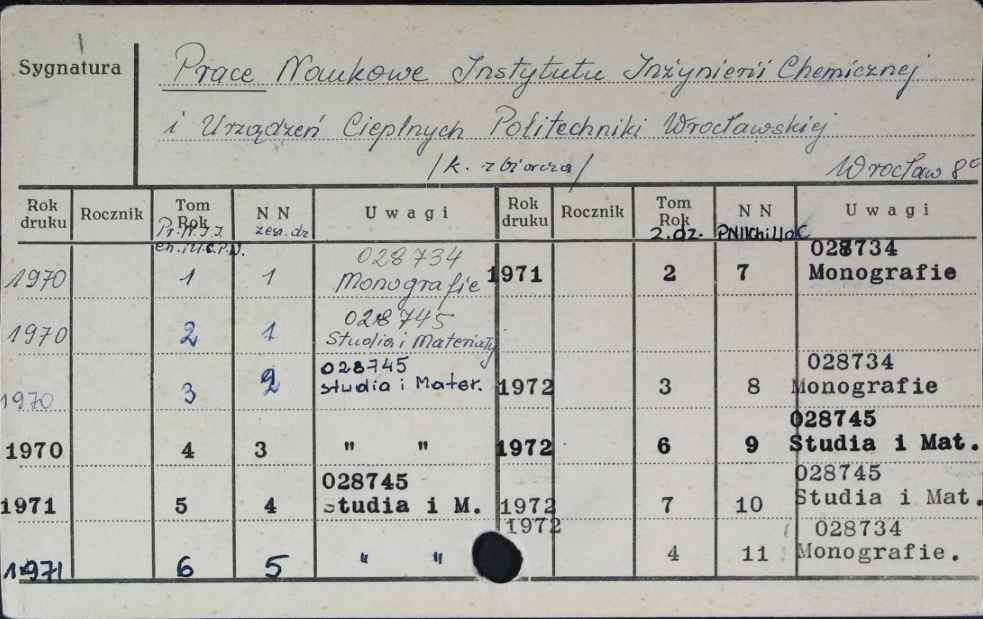 Sygnatura
Prace Naukowe Instytutu Inżynierii Chemicznej
i Urządzeń Cieplnych Politechniki Wrocławskiej
/k. zbiorcza/
Wrocław 8°
Rok druku Rocznik Tom Rok NN Uwagi Rok druku Rocznik Tom Rok NN Uwagi
zesz. dz 2.dz.
1970 1 1 028734 Monografie 1971 2 7 028734 Monografie
1970 2 1 028745 Studia i Materiały
1970 3 2 028745 Studia i Mater. 1972 3 8 028734 Monografie
1970 4 3 " " 1972 6 9 028745 Studia i Mat.
1971 5 4 028745 Studia i M. 1972 7 10 028745 Studia i Mat.
1971 6 5 " " 1972 4 11 028734 Monografie.